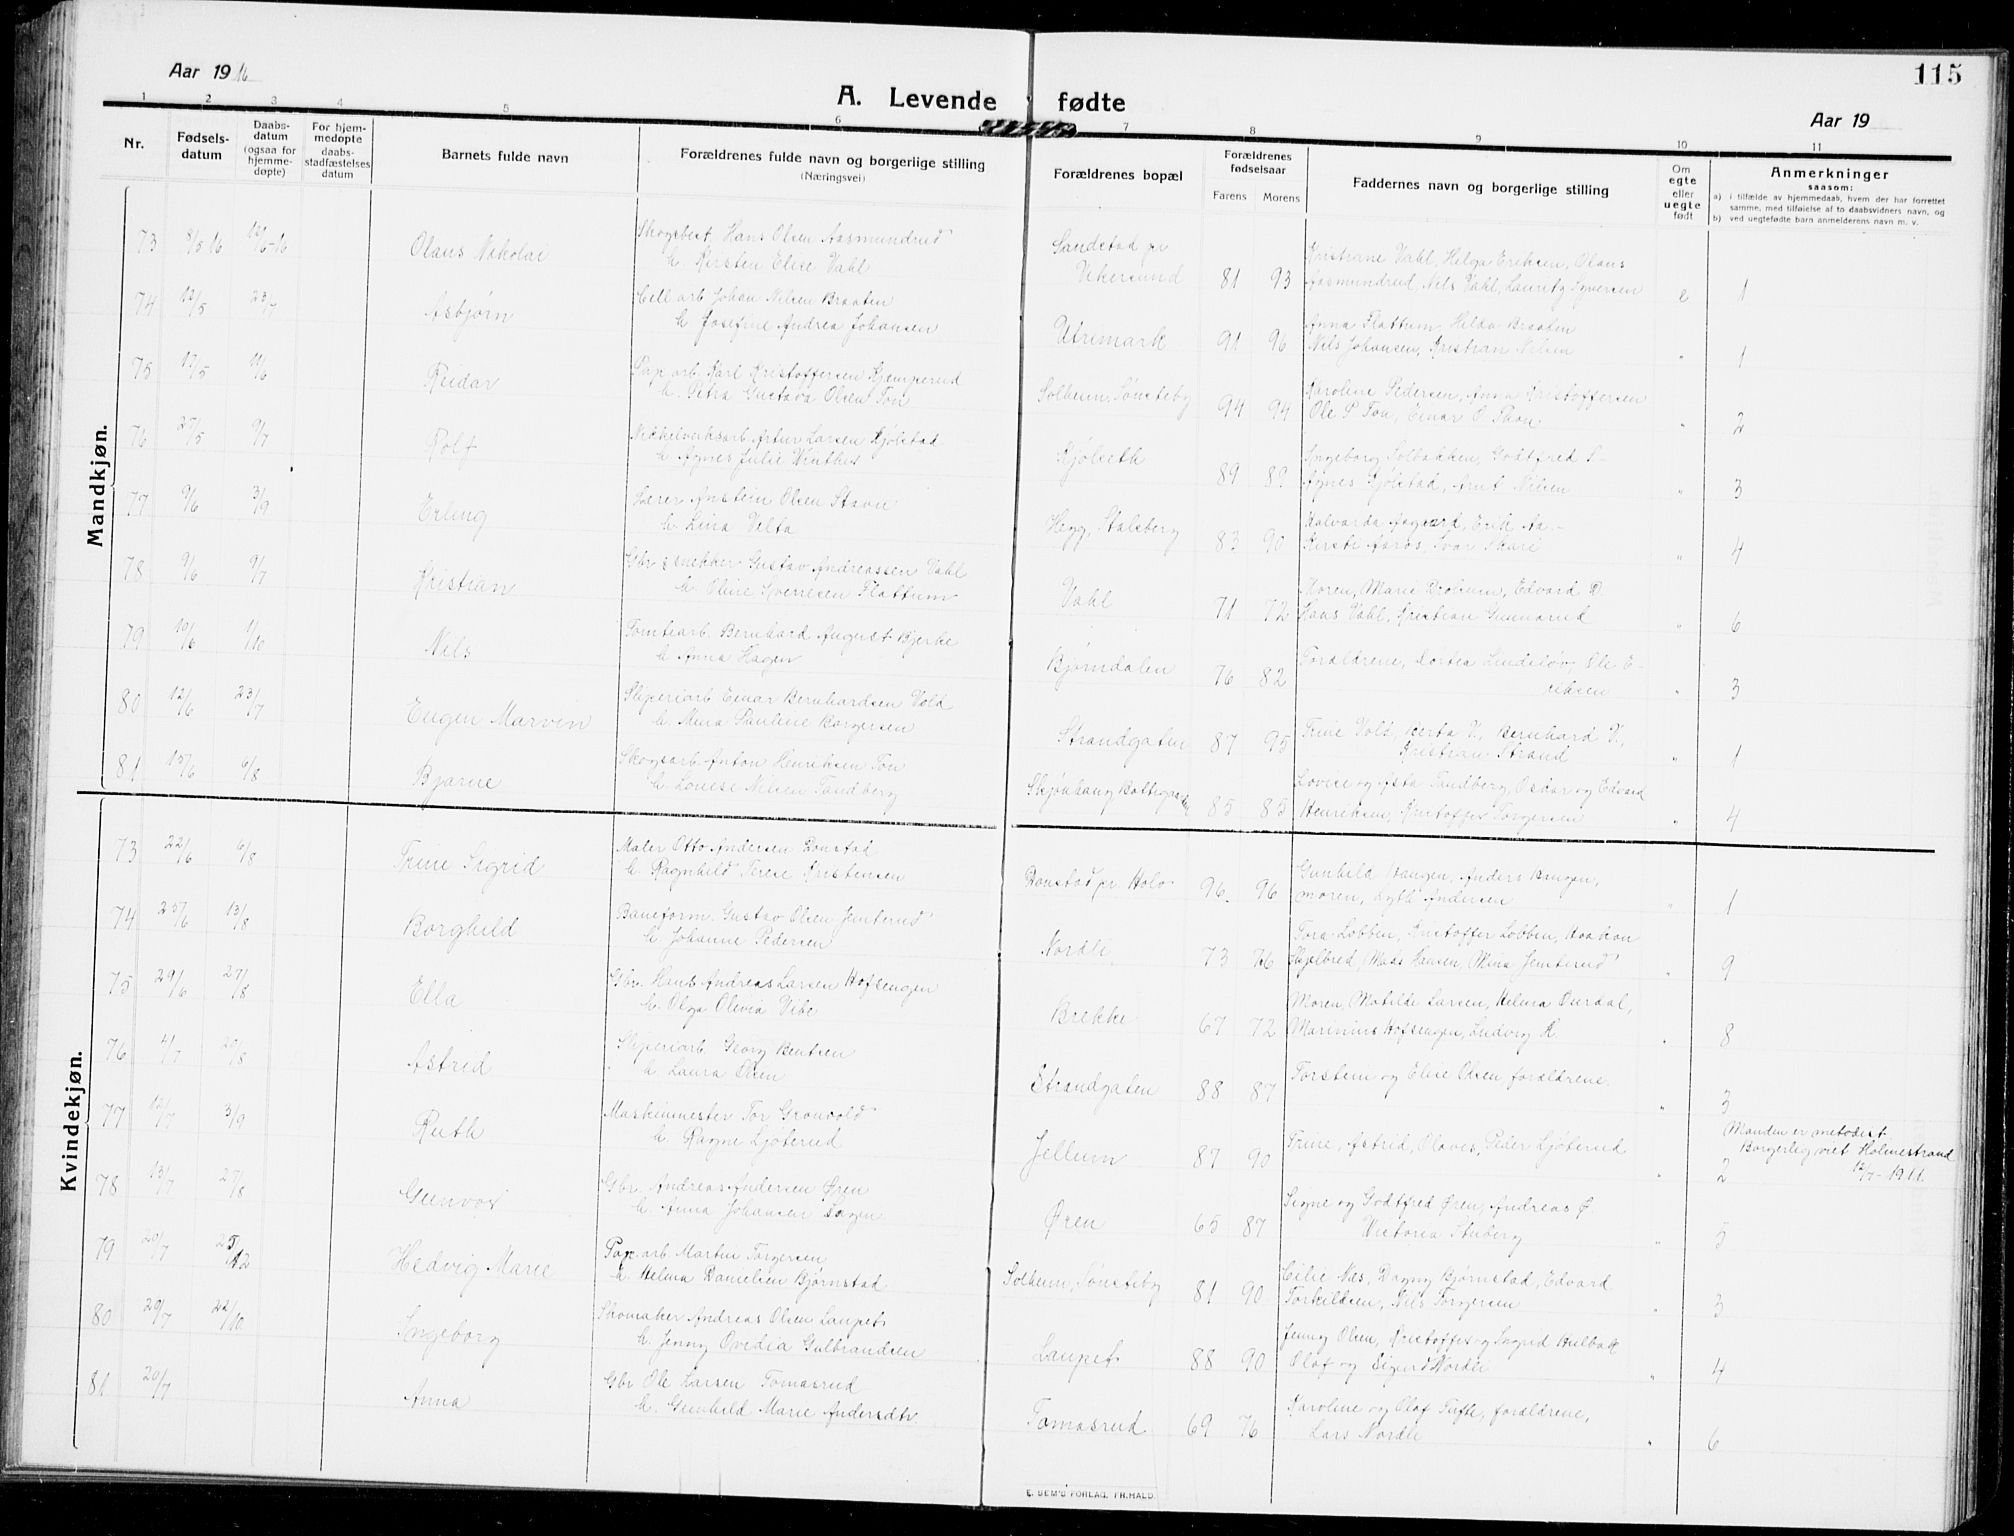 115
Aar 1916
A. Levende fødte
Aar 19
1 2 3 4 5 6 7 8 9 10 11
Nr.
Fødsels-
datum
Daabs-
datum
(ogsaa for
hjemme-
døpte)
For hjem-
medøpte
daabs-
stadfæstelses
datum
Barnets fulde navn
Forældrenes fulde navn og borgerlige stilling
(Næringsvei)
Forældrenes bopæl
Forældrenes
fødselsaar
Farens Morens
Faddernes navn og borgerlige stilling
Om
egte
eller
uegte
født
Anmerkninger
saasom:
a) i tilfælde av hjemmedaab, hvem der har forrettet
samme, med tilføielse af to daabsvidners navn, og
b) ved uegtefødte barn anmelderens navn m. v.
Mandkjøn.
73 8/5 16 12/6-16 Olaus Nikolai
Skogsbest. Hans Olsen Aasmundrud
h. Kirsten Elise Vahl
Sandstad pr
Vikersund 81 93
Kristiane Vahl, Helga Eriksen, Olaus
Aasmundrud, Nils Vahl, Lauritz Syversen e 1
74 12/5 23/7 Asbjørn
Cell arb Johan Nilsen Braaten
h Josefine Andrea Johansen
Utrimark 91 96
Anna Flattum, Hilda Braaten
Nils Johansen, Kristian Nilsen " 1
75 17/5 11/6 Reidar
Pap. arb. Karl Kristoffersen Kjemperud
h. Petra Gustava Olsen Ton
Solheim, Sønsteby 94 94
Karoline Pedersen, Anna Kristoffersen
Ole P Ton, Einar O. Thon " 2
76 25/5 9/7 Rolf
Nikkelverksarb Artur Larsen Kjølstad
h. Agnes Julie Winthus
Kjølseth 89 89
Ingeborg Solbakken, Godtfred S-
Agnes Kjølstad, Arnt Nilsen " 3
77 9/6 3/9 Erling
Lærer Anstein Olsen Stavn
h. Lina Velta
Hegg, Stalsberg 83 90
Halvarda Asgaard, Erik Aa-
Kirsti Aarøs, Ivar Skare " 4
78 9/6 9/7 Kristian
Gbr & snekker Gustav Andreassen Vahl
h. Oline Sverresen Flattum
Vahl 71 72
Moren, Marie Drolsum, Edvard D.
Hans Vahl, Kristian Gunnarud " 6
79 10/6 1/10 Nils
Tomtearb. Bernhard August Bjerke
h Anna Hagen
Bjørndalen 76 82
Forældrene, Dortea Lindsløv, Ole E-
riksen " 3
80 12/6 23/7 Eugen Marvin
Sliperiarb Einar Bernhardsen Vold
h. Mina Pauline Borgersen
Strandgaten 87 95
Trine Vold, Berta V., Bernhard V.,
Kristian Strand " 1
81 15/6 6/8 Bjarne
Skogsarb Anton Henriksen Ton
h. Louise Nilsen Tandberg
85 85
Lovise og Asta Tandberg, Oskar og Edvard
Henriksen, Kristoffer Torgersen " 4
Kvindekjøn.
73 22/6 6/8 Trine Sigrid
Maler Otto Andersen Bonstad
h. Ragnhild Terese Kristensen
Bonstad pr. Holo 96. 96
Gunhild Haugen, Anders Baugen,
moren, Lyth Andersen " 1
74 25/6 13/8 Borghild
Baneform. Gustav Olsen Jemterud
h. Johanne Pedersen
Nordli 73 76
Tora Løbben, Kristoffer Løbben, Haakon
Skjelbred, Mads Hansen, Mina Jemterud " 9
75 29/6 27/8 Ella
Gbr. Hans Andreas Larsen Hofsengen
h. Olga Olivia Vibe
Brekke 67 72
Moren, Matilde Larsen, Helma Buvdal,
Marinius Hofsengen, Ludvig H. " 8
76 4/7 20/8 Astrid
Sliperiarb. Georg Bentsen
h. Laura Olsen
Strandgaten 88 87
Torstein og Elise Olsen, forældrene. " 3
77 12/7 3/9 Ruth
Maskinmester Tor Grønvold
h. Ragne Ljøterud
Jellum 87 90
Trine, Astrid, Olaves, Peder Ljøterud " 2
Manden er metodist
Borgerlig viet Holmestrand
12/7-1911.
78 13/7 27/8 Gunvor
Gbr. Andreas Andersen Øren
h. Anna Johansen Dagen
Øren 65 87
Signe og Godtfred Øren, Andreas Ø
Victoria Stuberg " 5
79 20/7 25/12 Hedvig Marie
Pap. arb. Martin Torgersen
h. Helma Danielsen Bjørnstad
Solheim, Sønsteby 81 90
Cilie Næs, Dagny Bjørnstad, Edvard
Torkildsen, Nils Torgersen " 3
80 20/7 22/10 Ingeborg
Skomaker Andreas Olsen Laupet
h. Jenny Ovedia Gulbrandsen
Laupet 88 90
Jenny Olsen, Kristoffer og Ingrid Hulbak
Olaf og Sigurd Nordli " 4
81 20/7 Anna
Gbr Ole Larsen Tomasrud
h. Gunhild Marie Andersdtr.
Tomasrud 69 76
Karoline og Olaf Tufte, forældrene,
Lars Nordli " 6
E. SEM'S FORLAG, FR.HALD.